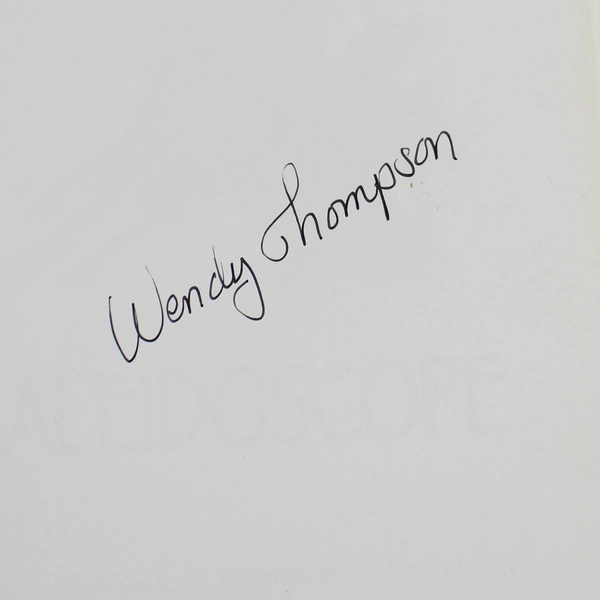 Wendy Thompson
ALEIDOSCOPE